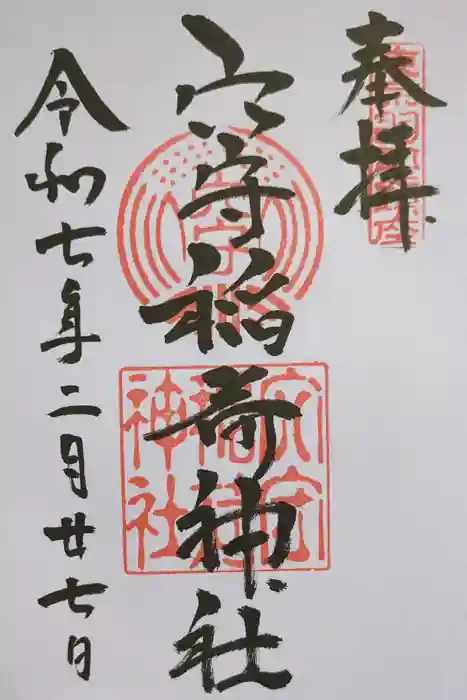 奉拝
穴守稲荷神社
令和七年二月廿七日
穴守
稲荷
神社